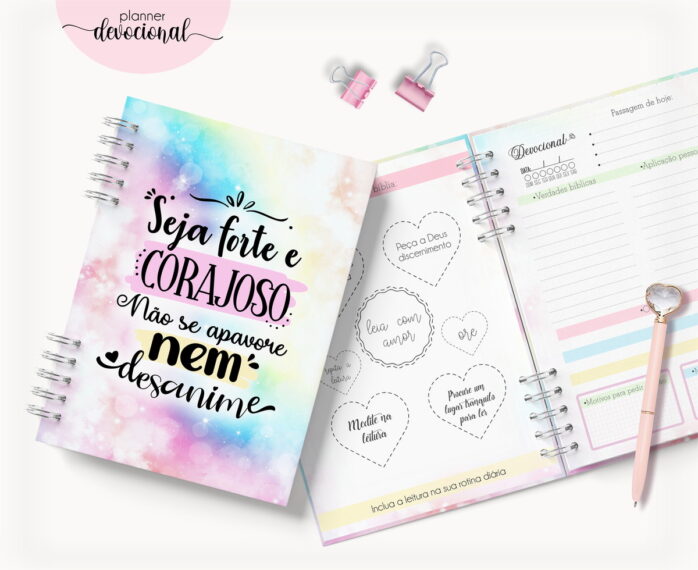 planner
devocional
Seja forte e
CORAJOSO
Não se apavore
nem
desanime
bíblia:
Peça a Deus
discernimento
leia com
amor
ore
repita a
leitura
Medite na
leitura
Procure um
lugar tranquilo
para ler
Inclua a leitura na sua rotina diária
Devocional
DATA: / /
DOM SEG TER QUA QUI SEX SAB
Passagem de hoje:
•Verdades bíblicas
•Aplicação pessoa
•Motivos para pedir